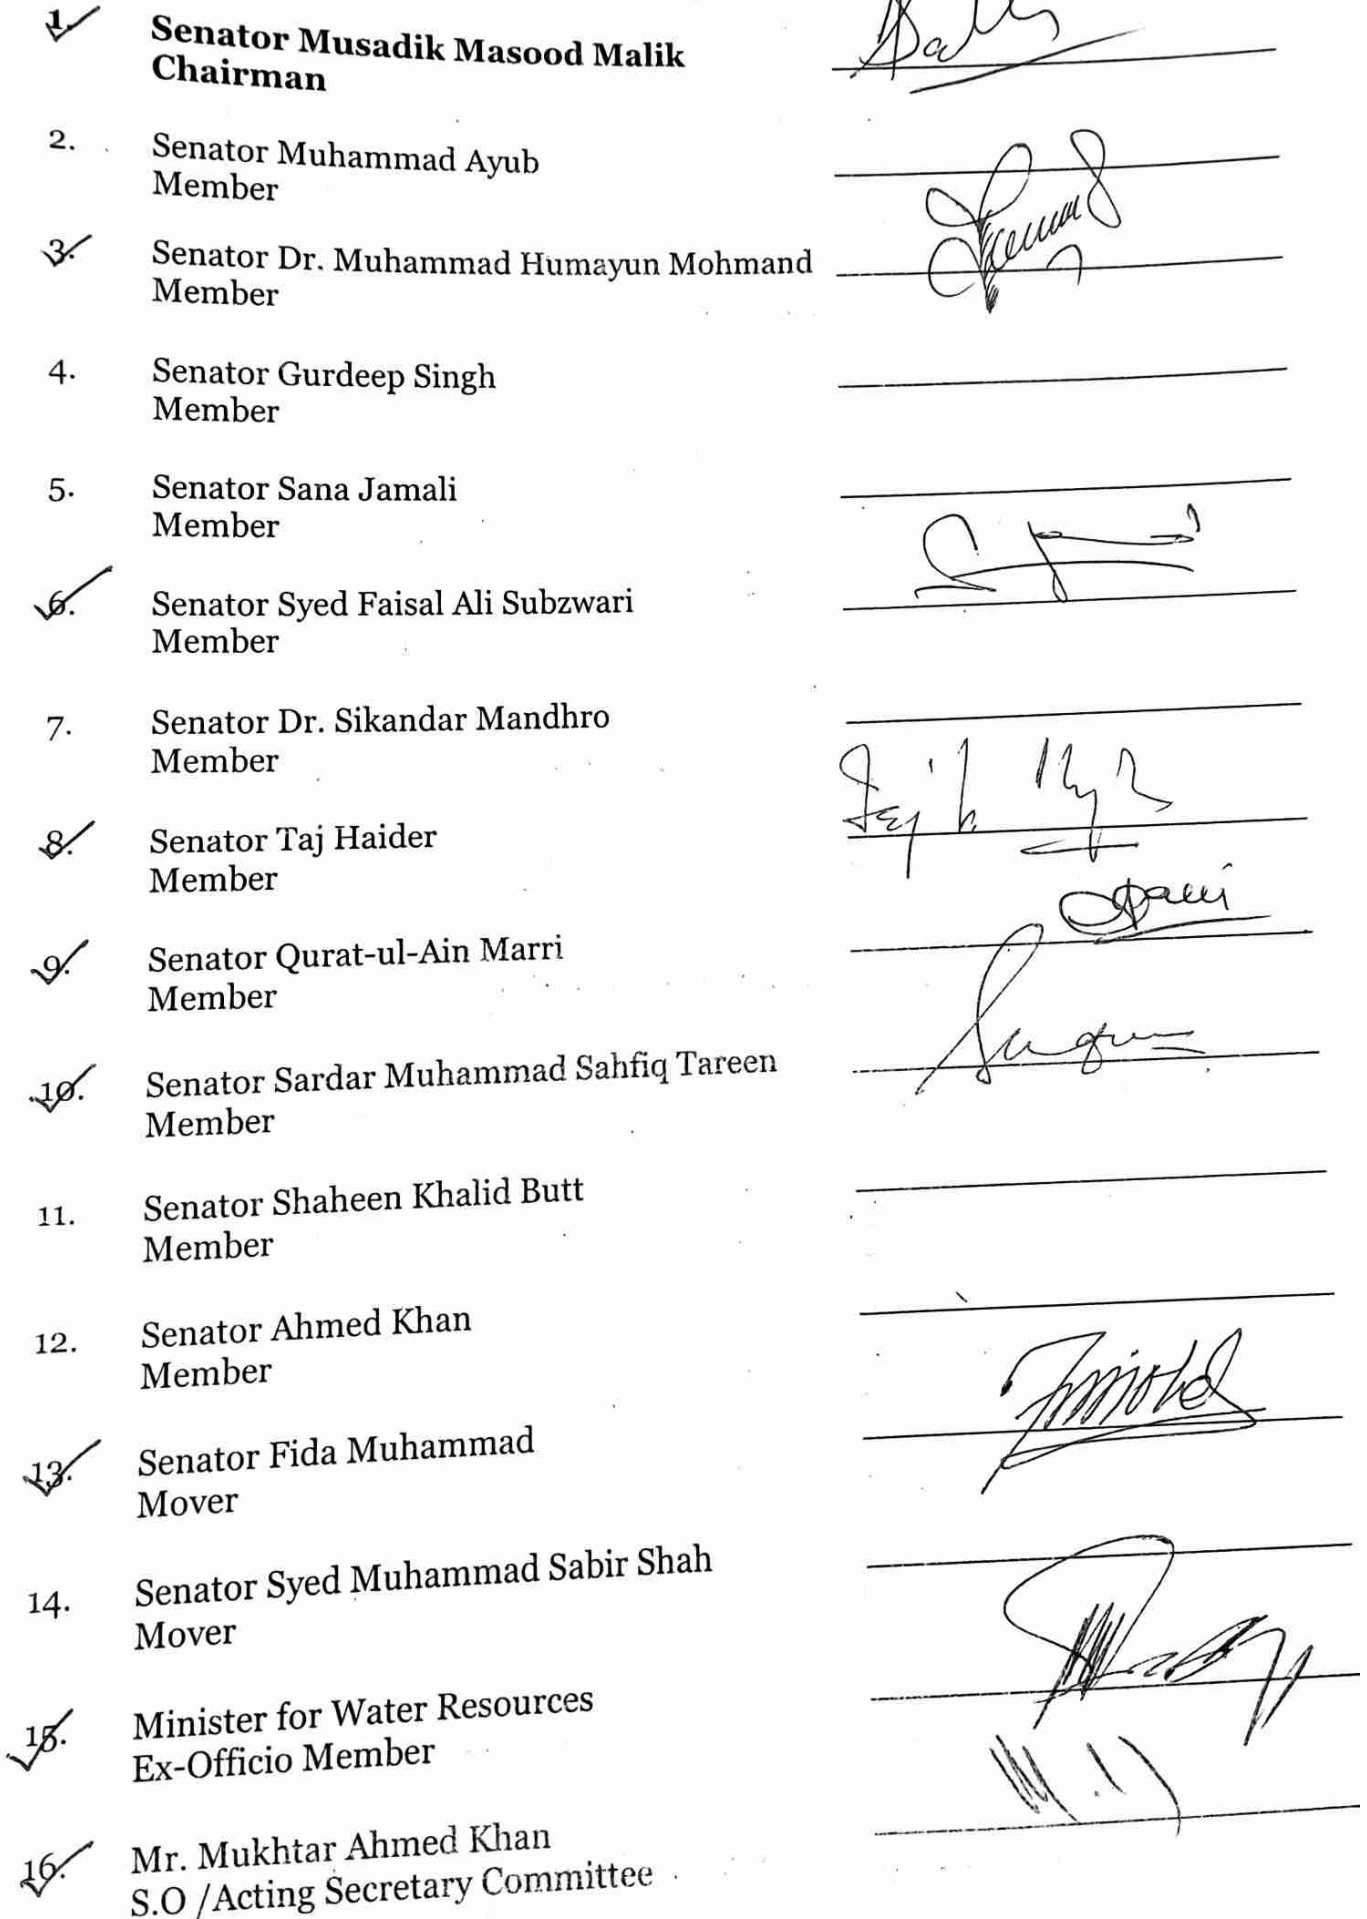 1. Senator Musadik Masood Malik
Chairman
2. Senator Muhammad Ayub
Member
3. Senator Dr. Muhammad Humayun Mohmand
Member
4. Senator Gurdeep Singh
Member
5. Senator Sana Jamali
Member
6. Senator Syed Faisal Ali Subzwari
Member
7. Senator Dr. Sikandar Mandhro
Member
8. Senator Taj Haider
Member
9. Senator Qurat-ul-Ain Marri
Member
10. Senator Sardar Muhammad Sahfiq Tareen
Member
11. Senator Shaheen Khalid Butt
Member
12. Senator Ahmed Khan
Member
13. Senator Fida Muhammad
Mover
14. Senator Syed Muhammad Sabir Shah
Mover
15. Minister for Water Resources
Ex-Officio Member
16. Mr. Mukhtar Ahmed Khan
S.O /Acting Secretary Committee